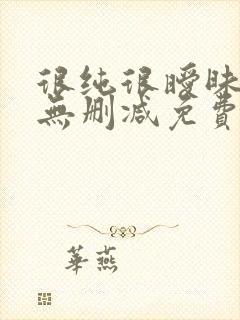 很纯很曖昧
無删减免費
華燕